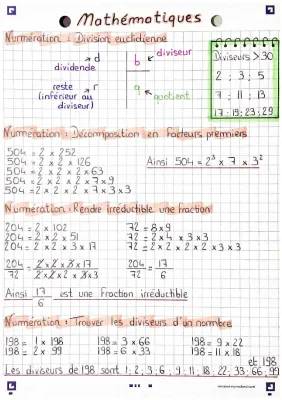 Mathématiques
Numération : Division euclidienne
d
dividende
b
diviseur
reste
(inférieur au
diviseur)
r
q
quotient
Diviseurs > 30
2 ; 3 ; 5
7 ; 11 ; 13
17 ; 19 ; 23 ; 29
Numération : Décomposition en facteurs premiers
504 = 2 x 252
504 = 2 x 2 x 126
504 = 2 x 2 x 2 x 63
504 = 2 x 2 x 2 x 7 x 9
504 = 2 x 2 x 2 x 7 x 3 x 3
Ainsi 504 = 2³ x 7 x 3²
Numération : Rendre irréductible une fraction
204 = 2 x 102
204 = 2 x 2 x 51
204 = 2 x 2 x 3 x 17
72 = 8 x 9
72 = 2 x 4 x 3 x 3
72 = 2 x 2 x 2 x 3 x 3
204/72 = 2 x 2 x 3 x 17 / 2 x 2 x 2 x 3 x 3
204/72 = 17/6
Ainsi 17/6 est une fraction irréductible
Numération : Trouver les diviseurs d'un nombre
198 = 1 x 198
198 = 3 x 66
198 = 9 x 22
198 = 2 x 99
198 = 6 x 33
198 = 11 x 18
Les diviseurs de 198 sont 1 ; 2 ; 3 ; 6 ; 9 ; 11 ; 18 ; 22 ; 33 ; 66 ; 99
et 198